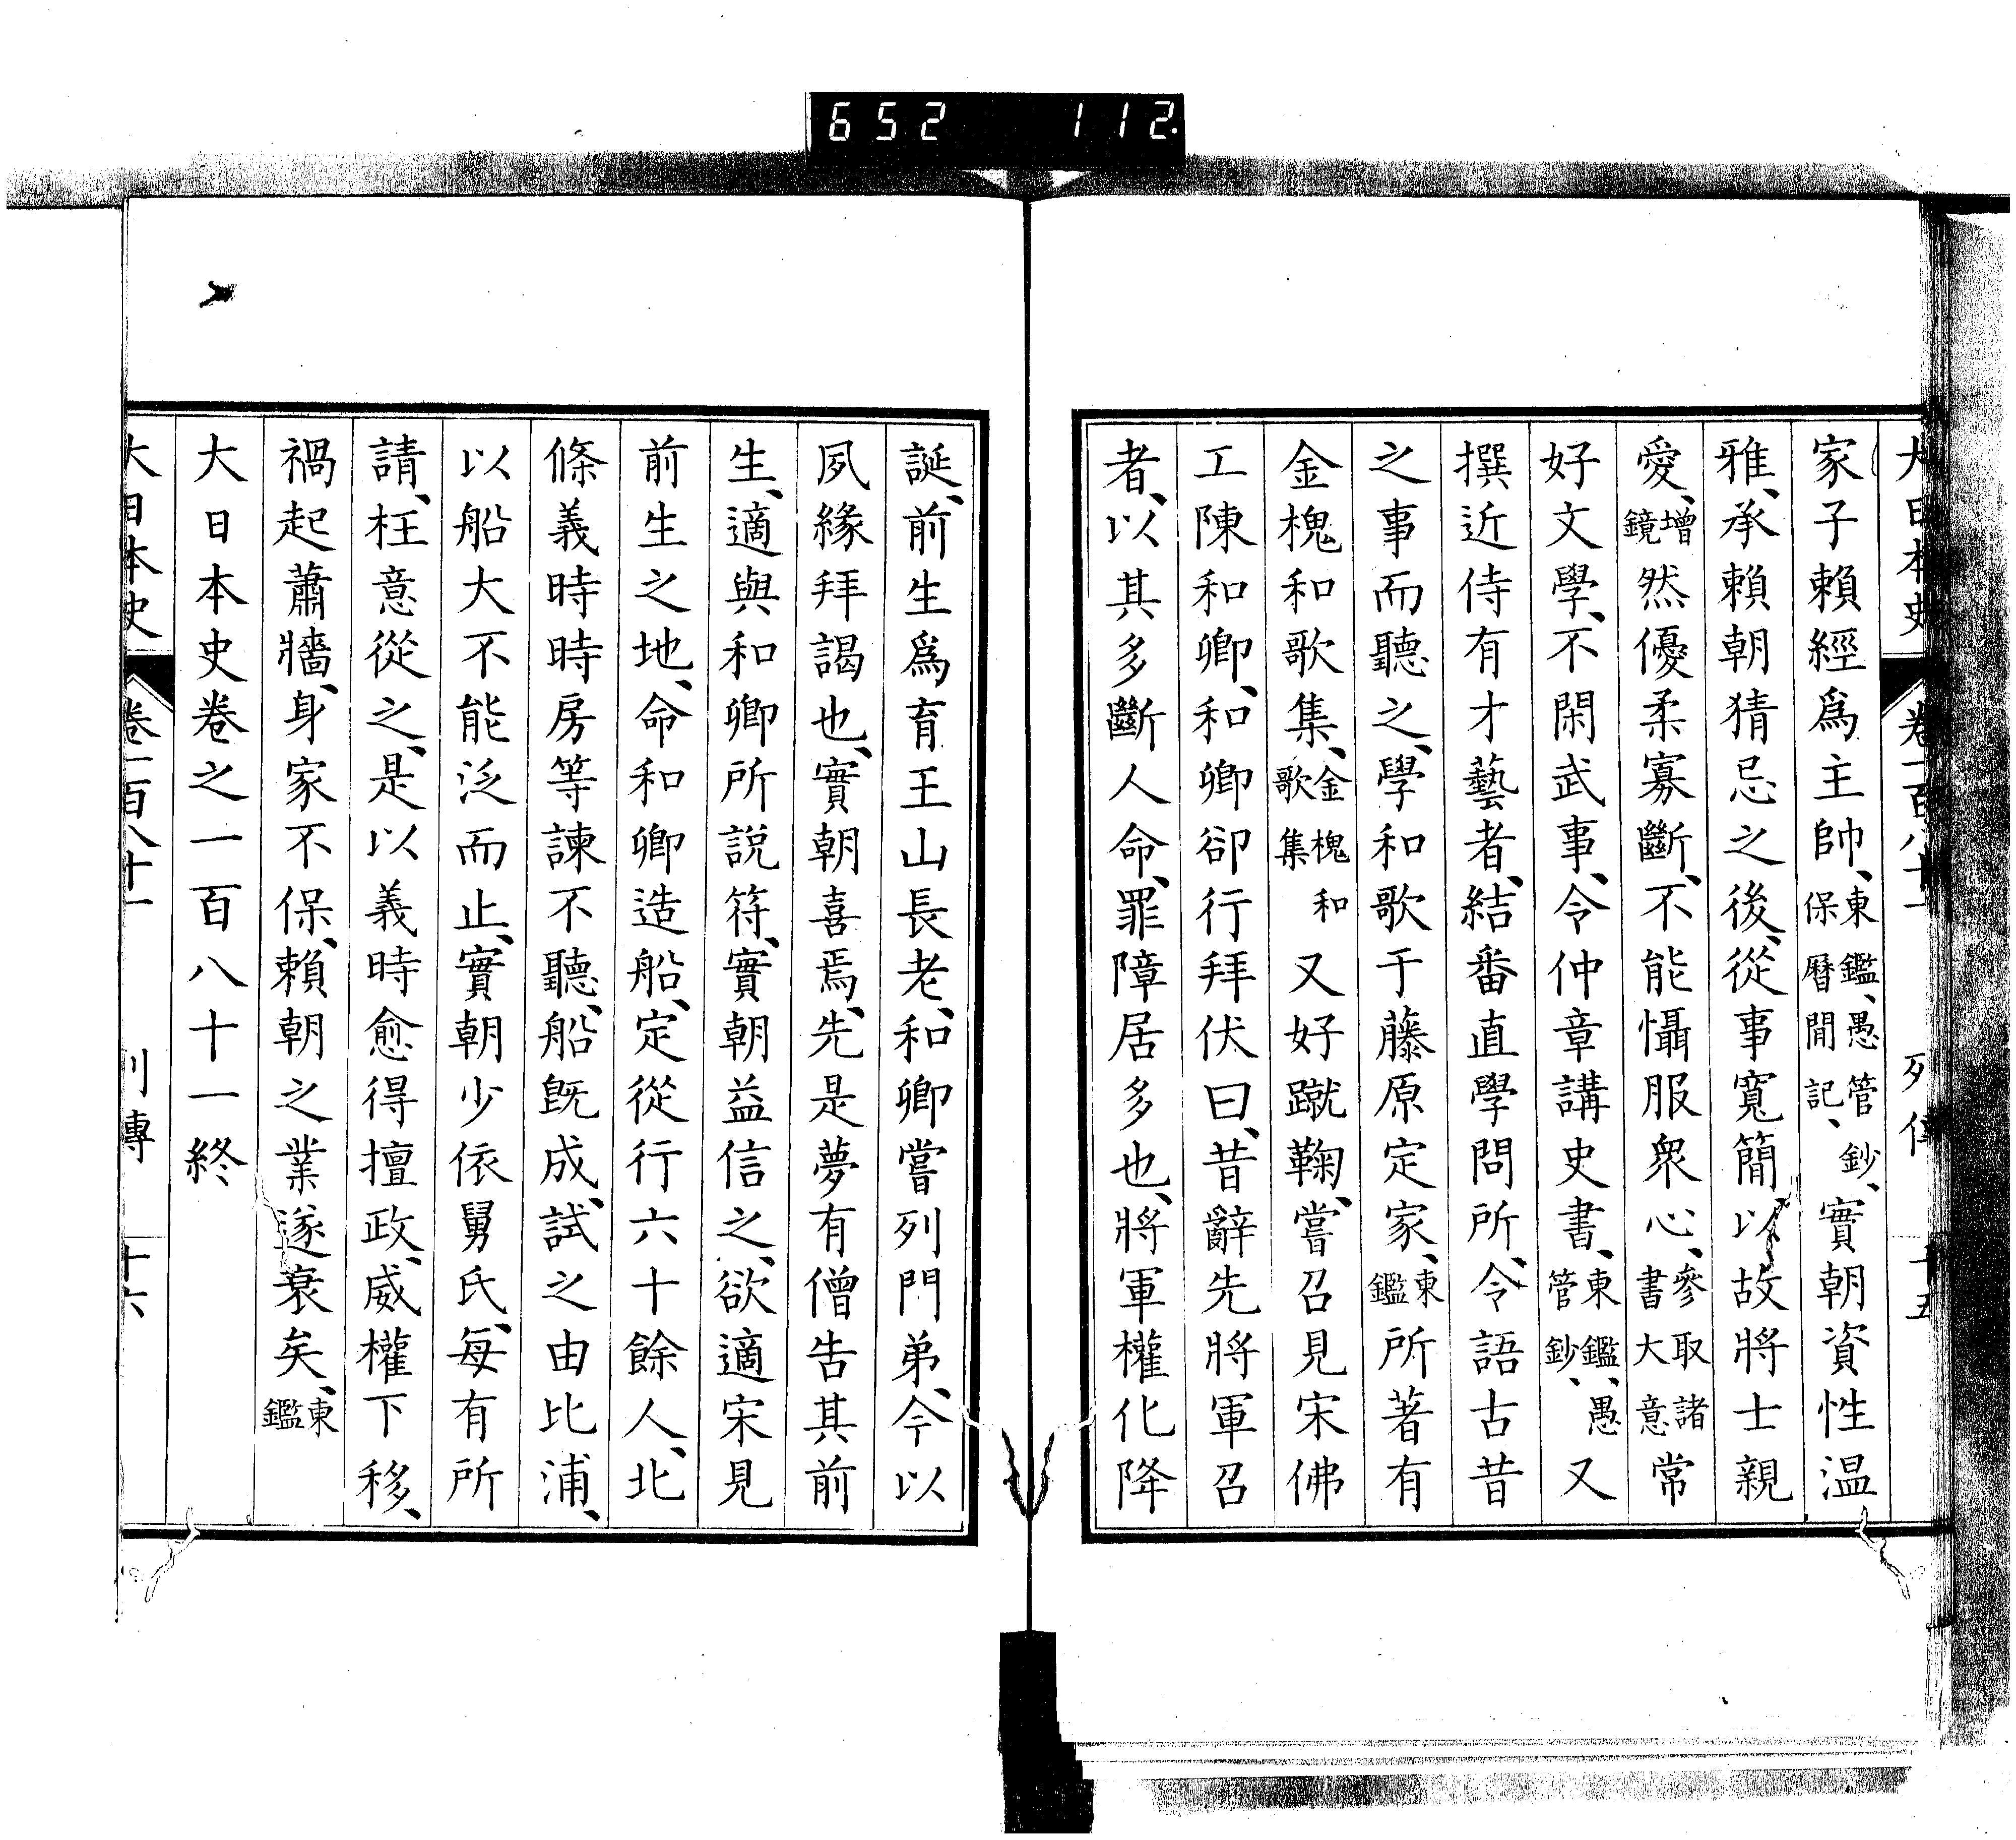 652 112.
大日本史 卷一百八十一 列傳 十五
家子賴經爲主帥、東鑑、愚管鈔、保曆間記、實朝資性温
雅、承賴朝猜忌之後、從事寬簡、以故將士親
愛、增鏡然優柔寡斷、不能懾服衆心、參取諸書大意常
好文學、不閑武事、令仲章講史書、東鑑、愚管鈔、又
撰近侍有才藝者、結番直學問所、令語古昔
之事而聽之、學和歌于藤原定家、東鑑所著有
金槐和歌集、金槐和歌集又好蹴鞠、嘗召見宋佛
工陳和卿、和卿卻行拜伏曰、昔辭先將軍召
者、以其多斷人命、罪障居多也、將軍權化降
誕、前生爲育王山長老、和卿嘗列門弟、今以
夙緣拜謁也、實朝喜焉、先是夢有僧告其前
生、適與和卿所說符、實朝益信之、欲適宋見
前生之地、命和卿造船、定從行六十餘人、北
條義時時房等諫不聽、船旣成、試之由比浦、
以船大不能泛而止、實朝少依舅氏、每有所
請、枉意從之、是以義時愈得擅政、威權下移、
禍起蕭牆、身家不保、賴朝之業遂衰矣、東鑑
大日本史卷之一百八十一終
大日本史 卷一百八十一 列傳 十六